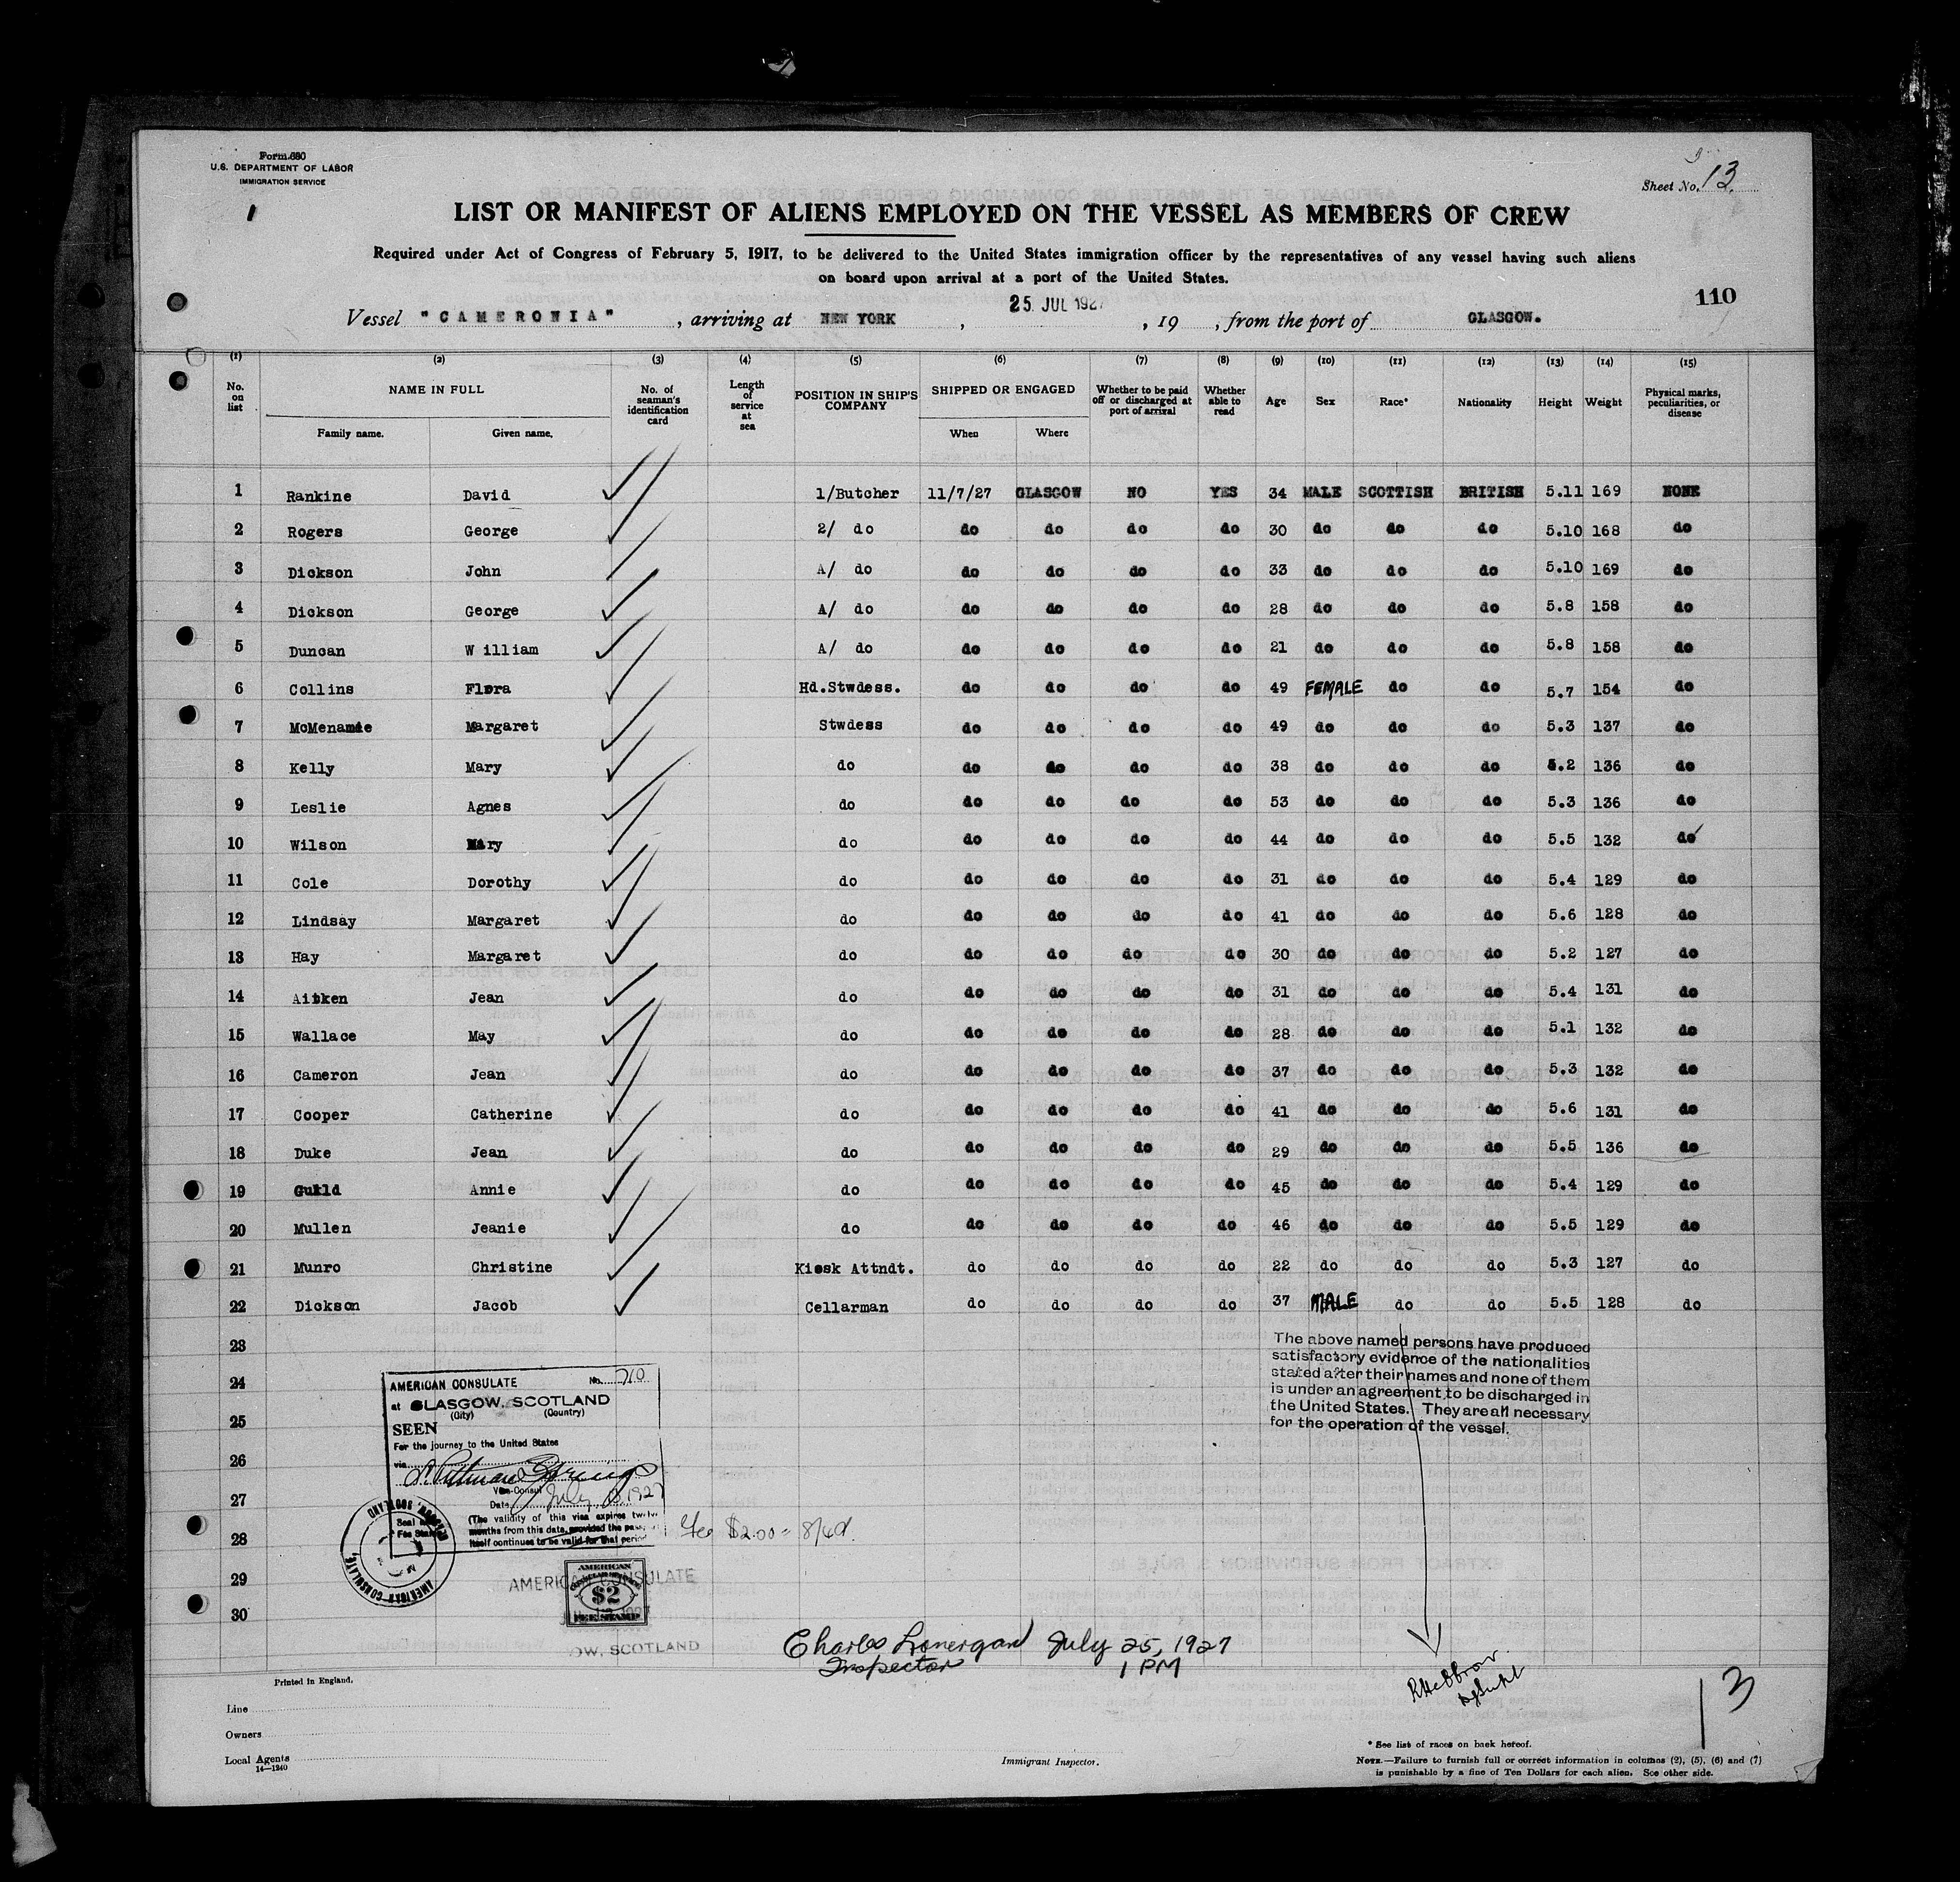 Form 680
U.S. DEPARTMENT OF LABOR
IMMIGRATION SERVICE
Sheet No. 13
LIST OR MANIFEST OF ALIENS EMPLOYED ON THE VESSEL AS MEMBERS OF CREW
Required under Act of Congress of February 5, 1917, to be delivered to the United States immigration officer by the representatives of any vessel having such aliens
on board upon arrival at a port of the United States.
110
Vessel "CAMERONIA", arriving at NEW YORK, 25 JUL 1927, 19 , from the port of GLASGOW.
(1) (2) (3) (4) (5) (6) (7) (8) (9) (10) (11) (12) (13) (14) (15)
No. on list NAME IN FULL Family name. Given name. No. of seaman's identification card Length of service at sea POSITION IN SHIP'S COMPANY SHIPPED OR ENGAGED When Where Whether to be paid off or discharged at port of arrival Whether able to read Age Sex Race* Nationality Height Weight Physical marks, peculiarities, or disease
1 Rankine David 1/Butcher 11/7/27 GLASGOW NO YES 34 MALE SCOTTISH BRITISH 5.11 169 NONE
2 Rogers George 2/ do do do do do 30 do do do 5.10 168 do
3 Dickson John A/ do do do do do 33 do do do 5.10 169 do
4 Dickson George A/ do do do do do 28 do do do 5.8 158 do
5 Duncan W illiam A/ do do do do do 21 do do do 5.8 158 do
6 Collins Flora Hd.Stwdess. do do do do 49 FEMALE do do 5.7 154 do
7 McMenamie Margaret Stwdess do do do do 49 do do do 5.3 137 do
8 Kelly Mary do do do do do 38 do do do 5.2 136 do
9 Leslie Agnes do do do do do 53 do do do 5.3 136 do
10 Wilson Mary do do do do do 44 do do do 5.5 132 do
11 Cole Dorothy do do do do do 31 do do do 5.4 129 do
12 Lindsay Margaret do do do do do 41 do do do 5.6 128 do
13 Hay Margaret do do do do do 30 do do do 5.2 127 do
14 Aitken Jean do do do do do 31 do do do 5.4 131 do
15 Wallace May do do do do do 28 do do do 5.1 132 do
16 Cameron Jean do do do do do 37 do do do 5.3 132 do
17 Cooper Catherine do do do do do 41 do do do 5.6 131 do
18 Duke Jean do do do do do 29 do do do 5.5 136 do
19 Guild Annie do do do do do 45 do do do 5.4 129 do
20 Mullen Jeanie do do do do do 46 do do do 5.5 129 do
21 Munro Christine Kiosk Attndt. do do do do 22 do do do 5.3 127 do
22 Dickson Jacob Cellarman do do do do 37 MALE do do 5.5 128 do
23
24
25
26
27
28
29
30
The above named persons have produced
satisfactory evidence of the nationalities
stated after their names and none of them
is under an agreement to be discharged in
the United States. They are all necessary
for the operation of the vessel.
AMERICAN CONSULATE No. 710
at GLASGOW, SCOTLAND
(City) (Country)
SEEN
For the journey to the United States
via
Vice-Consul
Date July 1927
(The validity of this visa expires twelve
months from this date, provided the
itself continues to be valid for that period
Seal and
Fee Stamp
AMERICAN CONSULATE, GLASGOW, SCOTLAND
Fee $2.00 = 8/4d
AMERICAN CONSULATE
AMERICAN
$2
FEE STAMP
OW, SCOTLAND
Charles Lonergan July 25, 1927
Inspector 1 PM
13
Printed in England.
Line
Owners
Local Agents
14—1240
Immigrant Inspector.
* See list of races on back hereof.
NOTE.—Failure to furnish full or correct information in columns (2), (5), (6) and (7)
is punishable by a fine of Ten Dollars for each alien. See other side.